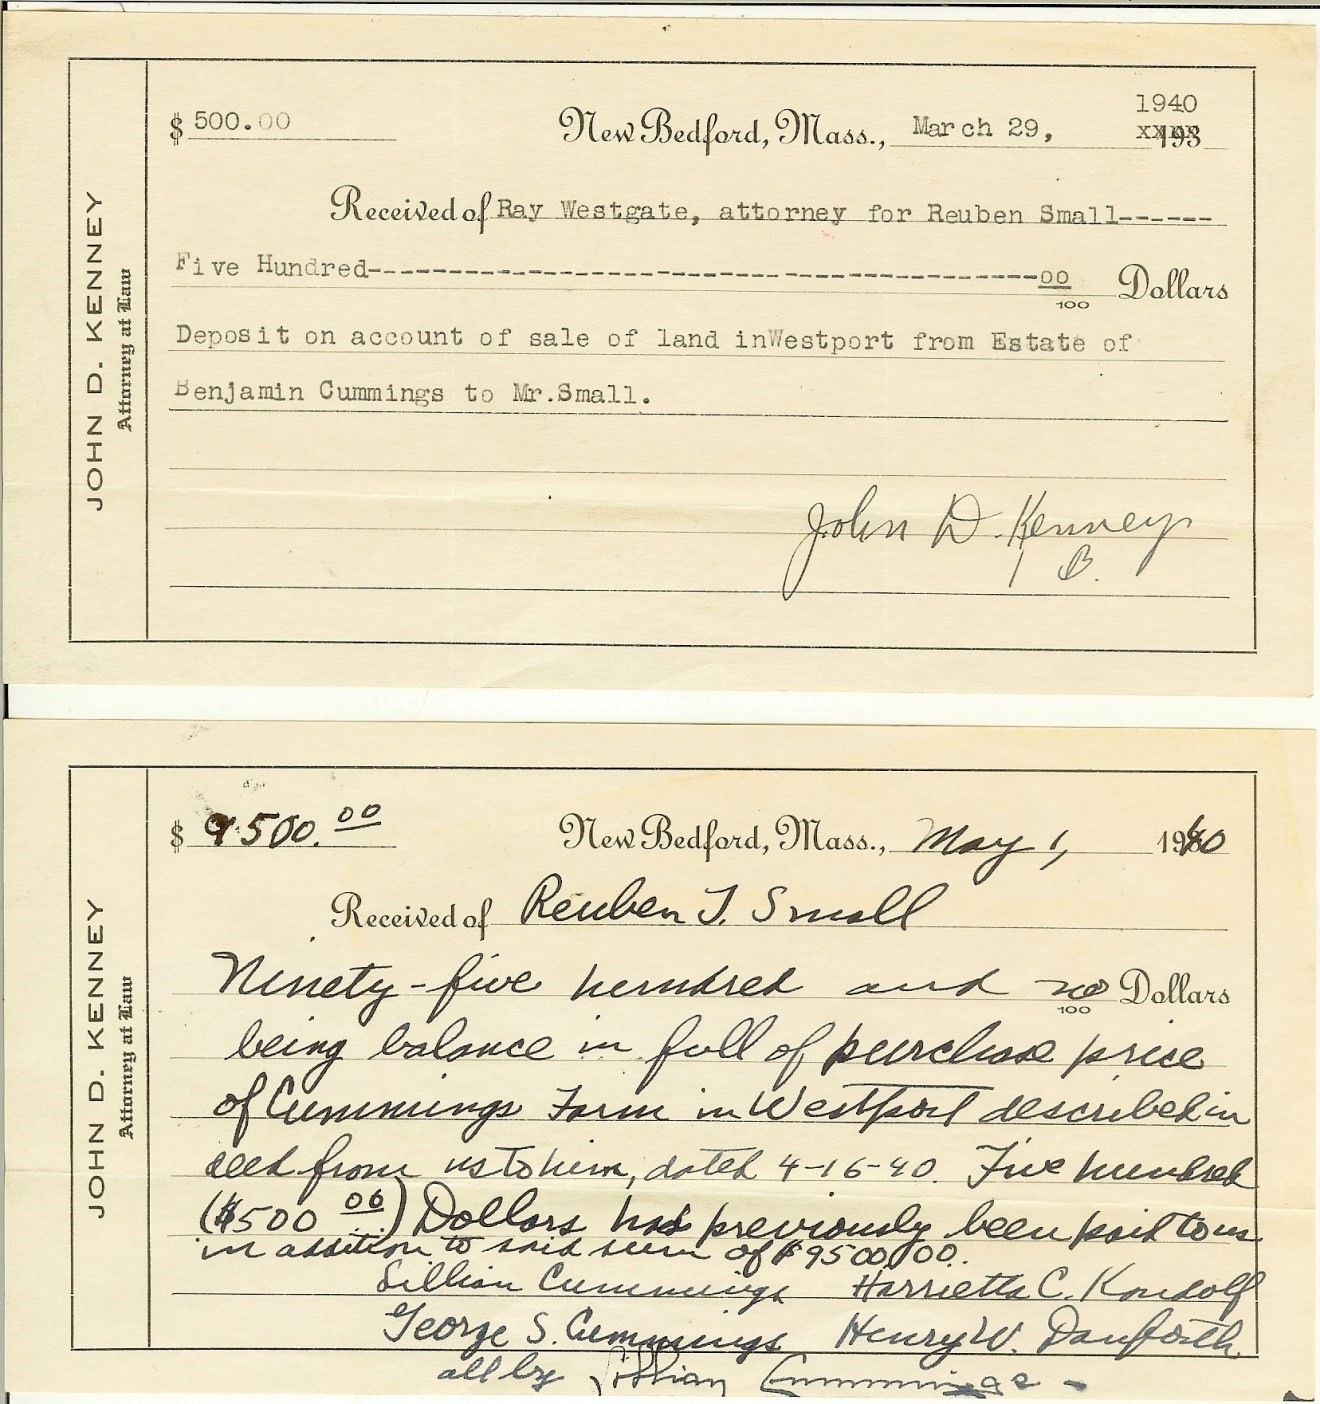 JOHN D. KENNEY
Attorney at Law
$ 500.00 New Bedford, Mass., March 29, 1940
xxxx 193
Received of Ray Westgate, attorney for Reuben Small------
Five Hundred------------------------------------00/100 Dollars
Deposit on account of sale of land inWestport from Estate of
Benjamin Cummings to Mr.Small.
John D. Kenney
B.
JOHN D. KENNEY
Attorney at Law
$ 9500.00 New Bedford, Mass., May 1, 1940
Received of Reuben T. Small
Ninety-five hundred and no/100 Dollars
being balance in full of purchase price
of Cummings Farm in Westport described in
deed from us to him, dated 4-16-40. Five hundred
($500 00) Dollars had previously been paid to us
in addition to said sum of $9500.00.
Lillian Cummings Harrietta C. Kondolf
George S. Cummings Henry W. Danforth
all by Lillian Cummings